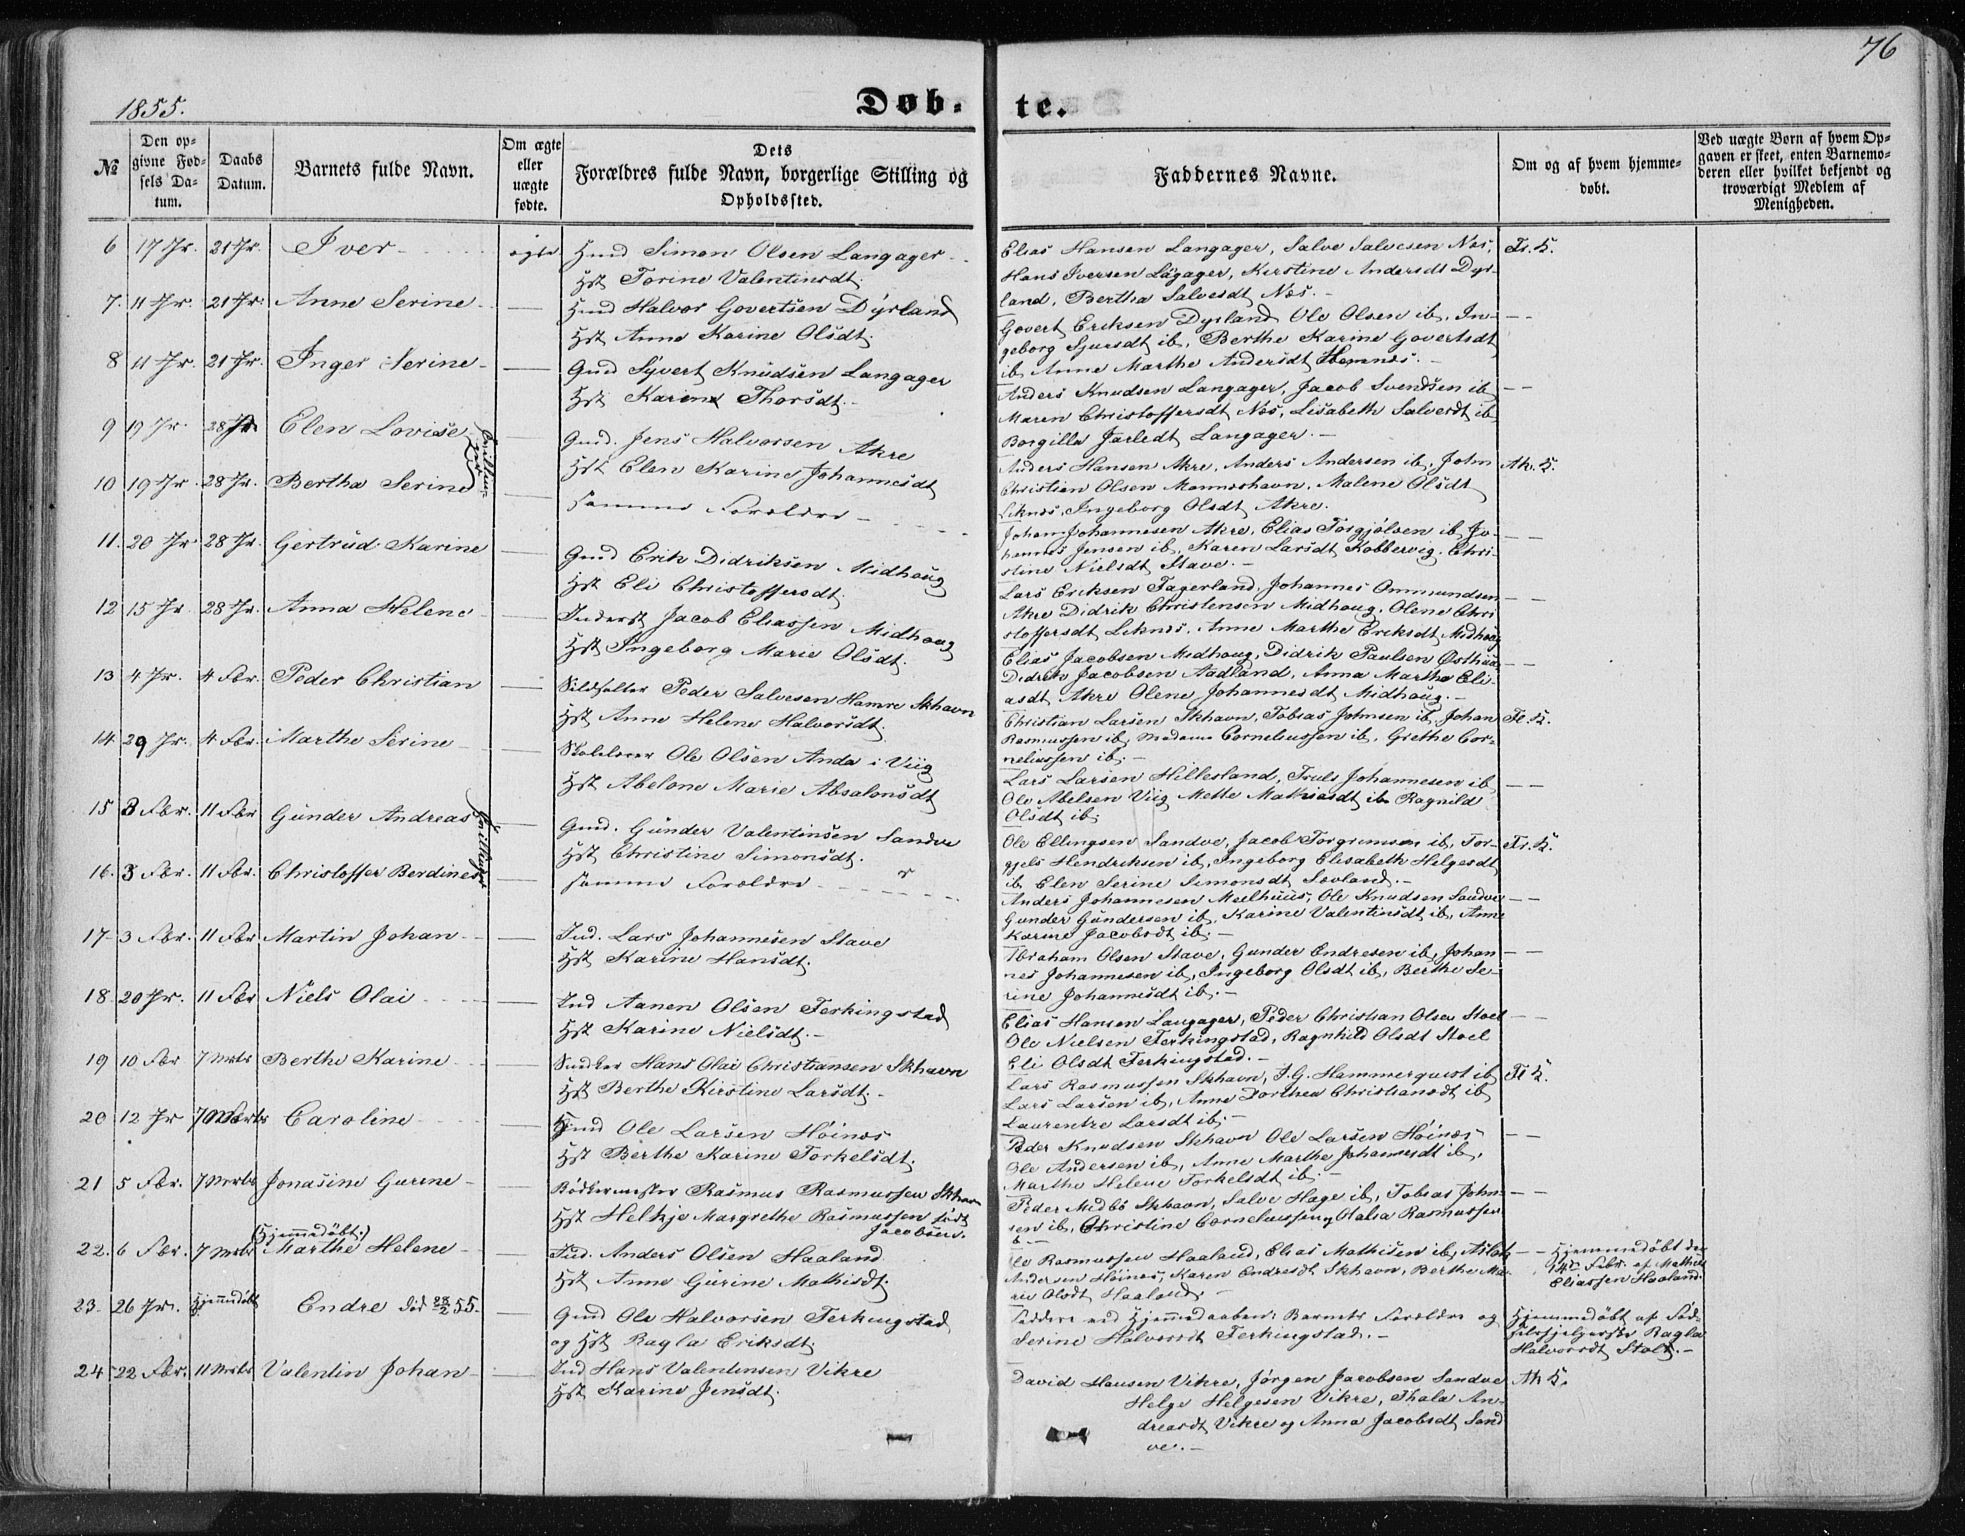 76
1855.
Døb-
te.
№
Den opgivne Fødsels Datum.
Daabs Datum.
Barnets fulde Navn.
Om ægte eller uægte fødte.
Dets Forældres fulde Navn, borgerlige Stilling og Opholdssted.
Faddernes Navne.
Om og af hvem hjemmedøbt.
Ved uægte Børn af hvem Opgaven er skeet, enten Barnemoderen eller hvilket bekjendt og troværdigt Medlem af Menigheden.
6 17 Jr. 21 Jr. Iver ægte
Simon Olsen Langager
Hst Torine Valentinsdt.
Elias Hansen Langager, Salve Salvesen Nes,
Hans Iversen Lagager, Kirstine Andersdt Dyr-
land, Bertha Salvesdt Nes.
7. 11 Jr. 21 Jr. Anne Serine
Halvor Govertsen Dyrland
Hst Anne Karine Olsdt.
Govert Eriksen Dyrland Ole Olsen ib, In-
geborg Sjursdt ib, Berthe Karine Govertsdt
ib Anne Marthe Andersdt Hemnes.
8 11 Jr. 21 Jr. Inger Serine
Gmd Syvert Knudsen Langager
Hst Karen Thorsdt.
Anders Knudsen Langager, Jacob Svendsen ib
Maren Christoffersdt Nes, Lisabeth Salvesdt ib
Borgilla Jarledt Langager.
9 19 Jr. 28 Jr Elen Lovise
Tvillinger
Gmd. Jens Halvorsen Akre
Hst Elen Karine Johannesdt
Anders Hansen Akre, Anders Andersen ib, John
Christian Olsen Mannshavn, Malene Olsdt
Liknes, Ingeborg Olsdt Akre.
10 19 Jr 28 Jr. Bertha Serine
samme Forældre
Johan Johannesen Akre, Elias Torgjølsen ib Jo-
hannes Jensen ib, Karen Larsdt Kobbervig, Chri-
stine Nielsdt Stave.
11. 20 Jr 28 Jr. Gertrud Karine
Gmd Erik Didriksen Midhaug
Hst Eli Christoffersdt.
Lars Eriksen Fagerland, Johannes Ommundsen
Akre Didrik Christensen Midhoug, Olene Chri
stoffersdt Liknes, Anne Marthe Eriksdt Midhoug
12 15 Jr. 28 Jr. Anna Helene
Inderst Jacob Eliassen Midhoug
Hst Ingeborg Marie Olsdt.
Elias Jacobsen Midhoug, Didrik Paulsen Østhuus
Didrik Jacobsen Aadland, Anna Martha Eli-
asdt Akre Olene Johannesdt Midhoug.
13 4 Jr. 4 Fbr. Peder Christian
Sildsalter Peder Salvesen Hamre Skhavn
Hst Anne Helene Halvorsdt.
Christian Larsen Skhavn, Tobias Johnsen ib, Johan
Rasmussen ib, Madame Corneliussen ib, Grethe Cor-
neliussen ib.
14 29 Jr. 4 Fbr. Marthe Serine
Skolelærer Ole Olsen Anda i Viig
Hst Abelone Marie Absalonsdt
Lars Larsen Hillesland, Truls Johannesen ib
Ole Abelsen Viig Mette Mathiasdt ib Ragnild
Olsdt ib.
15 3 Fbr. 11 Fbr Gunder Andreas
Tvillinger
Gmd. Gunder Valentinsen Sandve
Hst Christine Simonsdt.
Ole Ellingsen Sandve, Jacob Torgrimsen ib, Tor-
gjels Hendriksen ib, Ingeborg Elisabeth Helgesdt
ib, Elen Serine Simonsdt Sævland.
16. 3 Fbr. 11 Fbr. Christoffer Berdines
samme Forældre
Anders Johannesen Meelhuus, Ole Knudsen Sandve
Gunder Gundersen ib, Karine Valentinsdt ib, Anne
Karine Jacobsdt ib.
17 3 Fbr. 11 Fbr Martin Johan
Ind. Lars Johannesen Stave
Hst Karine Hansdt.
Abraham Olsen Stave, Gunder Endresen ib, Johan
nes Johannesen ib, Ingeborg Olsdt ib, Berthe Se-
rine Johannesdt ib.
18. 20 Jr. 11 Fbr Niels Olai
Ind Aanen Olsen Ferkingstad
Hst Karine Nielsdt.
Elias Hansen Langager, Peder Christian Olsen Stoel
Ole Nielsen Ferkingstad, Ragnhild Olsdt Stoel
Eli Olsdt Ferkingstad.
19 10 Fbr 7 Mrts Berthe Karine
Snedker Hans Olai Christiansen Skhavn
Hst Berthe Kirstine Larsdt.
Lars Rasmussen Skhavn, J.G. Hammerquist ib
Lars Larsen ib, Anne Dorthea Christiansdt ib
Laurentze Larsdt ib.
20 12 Jr 7 Marts Caroline
Gmd Ole Larsen Høines
Hst Berthe Karine Torkelsdt.
Peder Knudsen Skhavn Ole Larsen Høines
Ole Andersen ib, Anne Marthe Johannesdt ib,
Marthe Helene Torkelsdt ib
21 5 Fbr. 7 Mrts Jonasine Gurine
Bødkermester Rasmus Rasmussen Skhavn
Hst Helkje Margrethe Rasmussen født Jacobsen.
Peder Medbø Skhavn, Salve Hage ib, Tobias John-
sen ib, Christine Corneliussen og Malia Rasmussen
22. 6 Fbr. 7 Mrts (Hjemmedøbt.) Marthe Helene
Ind. Anders Olsen Haaland
Hst Anne Gurine Mathisdt.
Ole Rasmussen Haaland, Elias Mathisen ib, Aslak
Andersen Høines, Karen Endresdt Skhavn, Berthe Ma-
rie Olsdt Haaland.
Hjemmedøbt den
14de Febr. af Mathis
Eliassen Haaland.
23. 26 Jr. Hjemmedøbt Endre død 28/2 55.
Gmd Ole Halvorsen Ferkingstad
og Hst Ragla Eriksdt
Faddere ved Hjemmedaaben: Barnets Forældre og
Serine Halvorsdt Ferkingstad.
Hjemmedøbt af Fød-
selshjelperske Ragla
Halvorsdt Stol.
24 22 Fbr. 11 Mrts Valentin Johan
Ind Hans Valentinsen Vikre
Hst Karine Jensdt.
David Hansen Vikre, Jørgen Jacobsen Sandve
Helge Helgesen Vikre, Thala An-
dreasdt Vikre og Anna Jacobsdt Sand
ve.